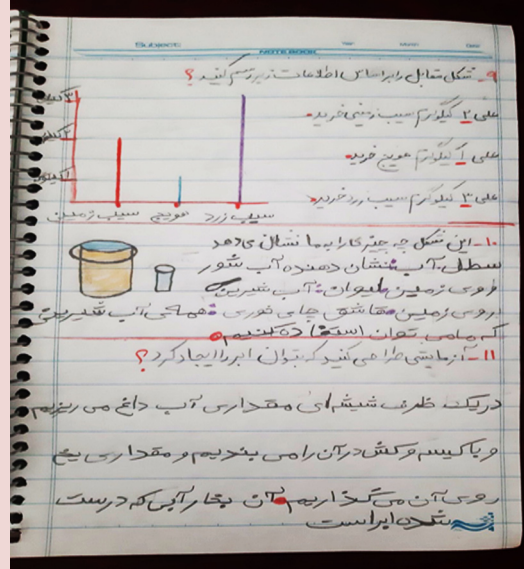 Subject:
NOTEBOOK
Date
۹- شکل مقابل را براساس اطلاعات زیر رسم کنید؟
علی ۲ کیلوگرم سیب زمینی خرید.
علی ۱ کیلوگرم هویج خرید.
علی ۳ کیلوگرم سیب زرد خرید.
سیب زمینی هویج سیب زرد
۱۰- این شکل چه چیزی را به ما نشان می‌دهد
سطل آب: نشان دهنده آب شور
روی زمین لیوان: آب شیرین
روی زمین قاشق چای خوری: همه‌ی آب شیرینی
که ما می توان استفاده کنیم.
۱۱- آزمایشی طراحی کنید که بتوان ابر را ایجاد کرد؟
در یک ظرف شیشه‌ای مقداری آب داغ می ریزیم
و با کیسه و کش در آن را می بندیم و مقداری یخ
روی آن می گذاریم. آن بخار آبی که درست
شده ابر است